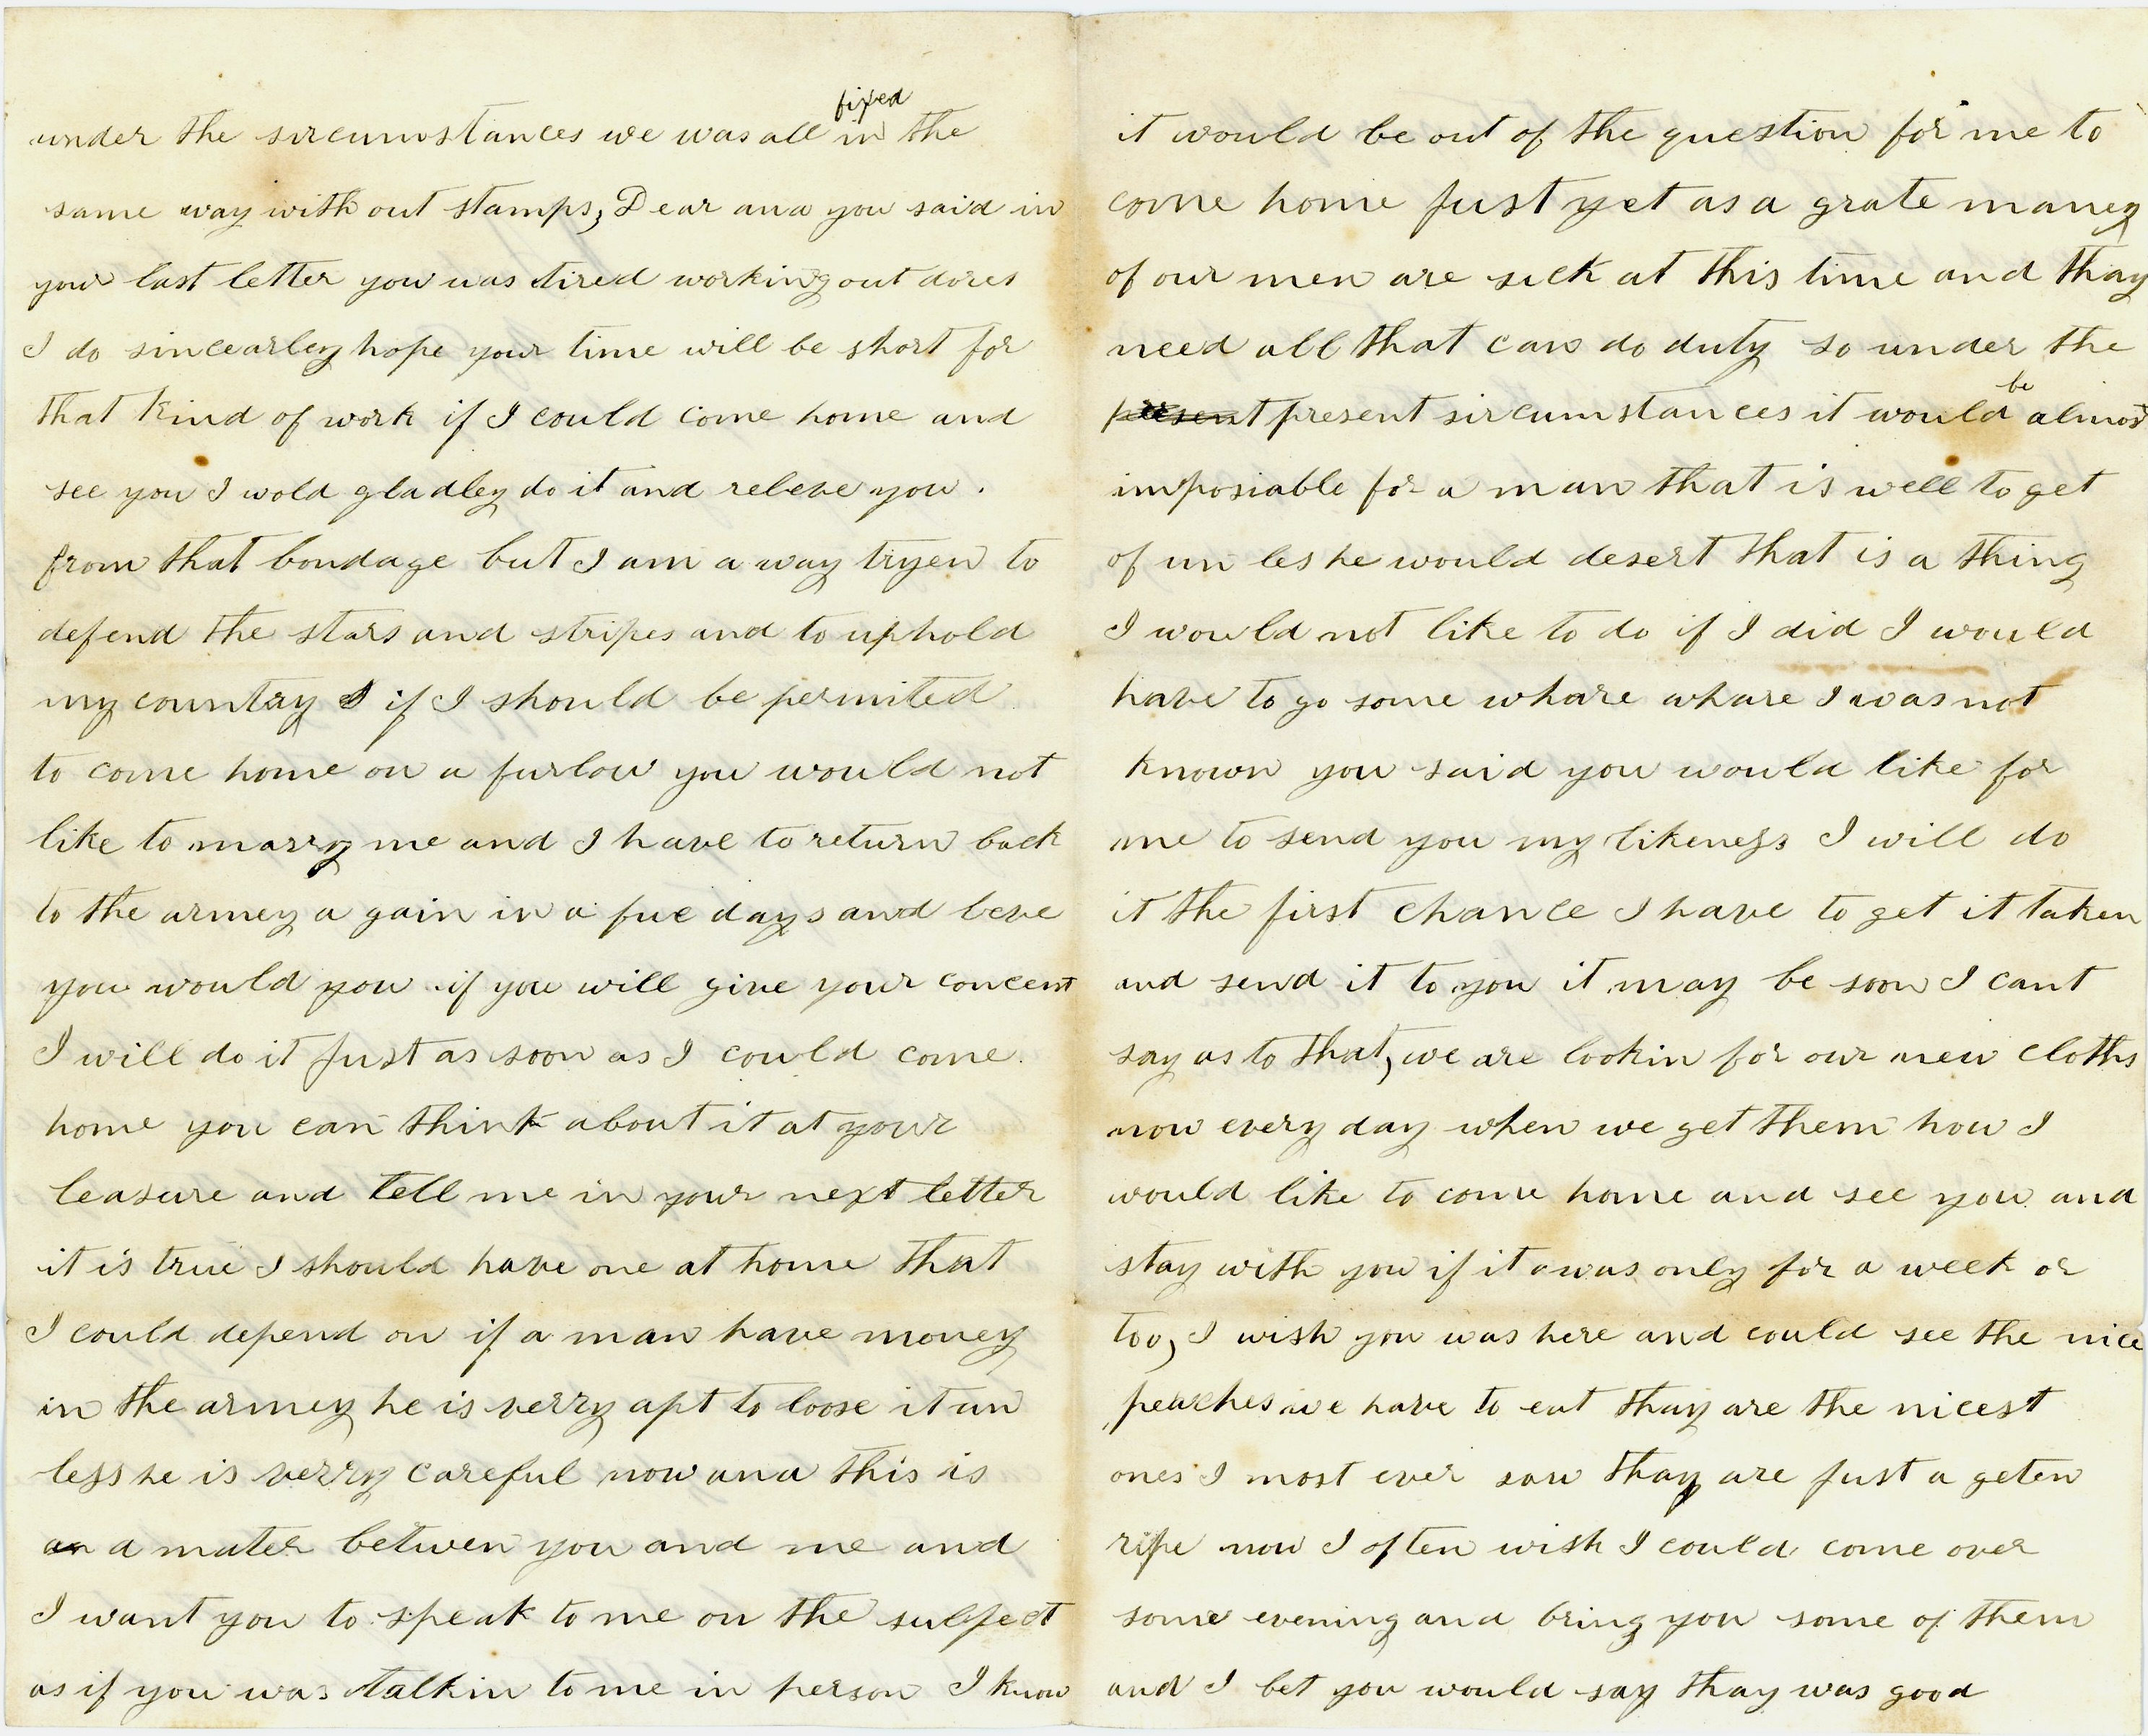 under the sircumstances we was all fixed in the
same way with out stamps, Dear ana you said in
your last letter you was tired working out dores
I do sincearley hope your time will be short for
that kind of work if I could come home and
see you I wold gladley do it and releve you.
from that bondage but I am a way tryen to
defend the stars and stripes and to uphold
my country I if I should be permited
to come home on a furlow you would not
like to marry me and I have to return back
to the armey a gain in a fue days and leve
you would you if you will give your concent
I will do it Just as soon as I could come.
home you can think about it at your
leasure and tell me in your next letter
it is true I should have one at home that
I could depend on if a man have money
in the armey he is verry apt to loose it un
less he is verry careful now ana this is
an a mater betwen you and me and
I want you to speak to me on the subject
as if you was talkin to me in person I know
it would be out of the question for me to
come home Just yet as a grate maney
of our men are sick at this time and thay
need all that can do duty so under the
present present sircumstances it would be almost
imposiable for a man that is well to get
of un les he would desert that is a thing
I would not like to do if I did I would
have to go some whare whare I was not
known you said you would like for
me to send you my likeness I will do
it the first chance I have to get it taken
and send it to you it may be soon I cant
say as to that, we are lookin for our new cloths
now every day when we get them how I
would like to come home and see you and
stay with you if it was only for a week or
too, I wish you was here and could see the nice
peaches we have to eat thay are the nicest
ones I most ever saw thay are Just a geten
ripe now I often wish I could come over
some evening and bring you some of them
and I bet you would say thay was good